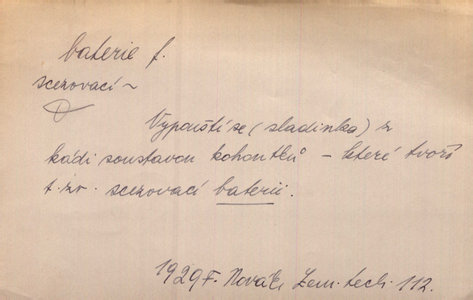 baterie f.
scezovací ~
Vypouští se (sladinka) z
kádi soustavou kohoutků – které tvoří
t. zv. scezovací baterii.
1929 F. Novák Zem. tech. 112.